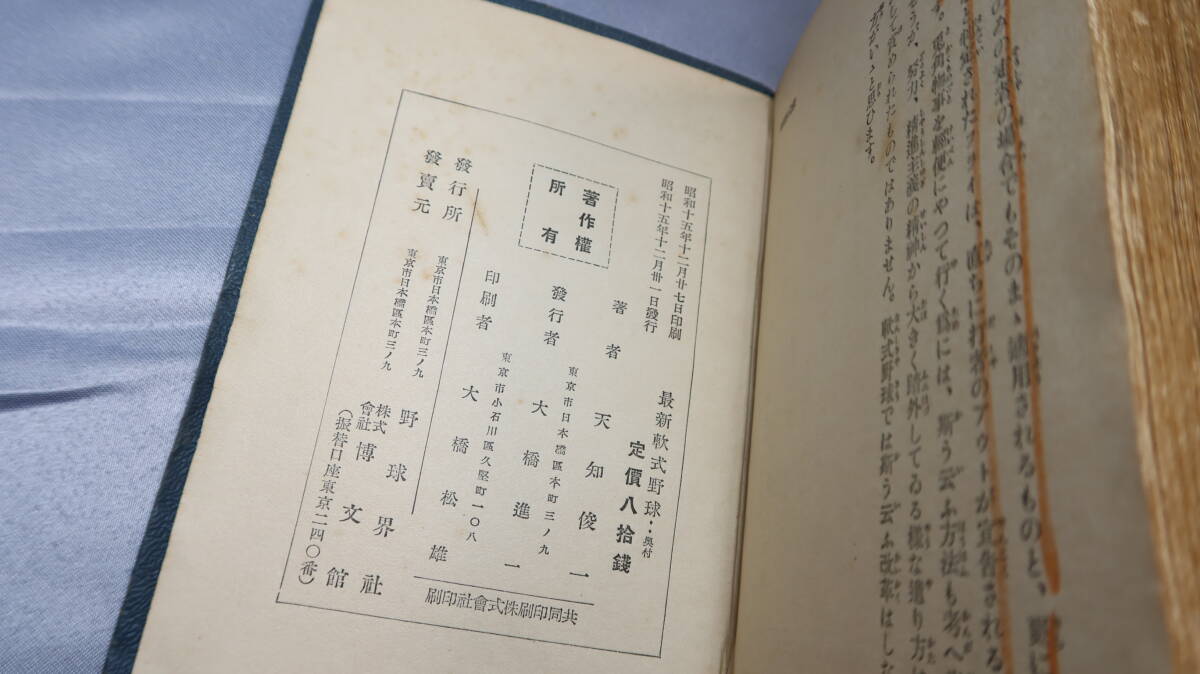 のみの走者の場合でもそのまゝ適用されるものと、
は、直ちに打者のアウトが宣告される
を輕便にやつて行く爲には、斯う云ふ方法も考へ
努力、精進主義の精神から大きく踏外してゐる様な遣り方は
められたものではありません。軟式野球では斯う云ふ改革はした
方がいゝと思ひます。
最新軟式野球・奥付
定價八拾錢
昭和十五年十二月廿七日印刷
昭和十五年十二月卅一日發行
著作權
所有
著者 天知俊一
東京市日本橋區本町三ノ九
發行者 大橋進一
東京市小石川區久堅町一〇八
印刷者 大橋松雄
共同印刷株式會社印刷
發行所 東京市日本橋區本町三ノ九 野球界社
發賣元 東京市日本橋區本町三ノ九 株式會社博文館
(振替口座東京二四〇番)